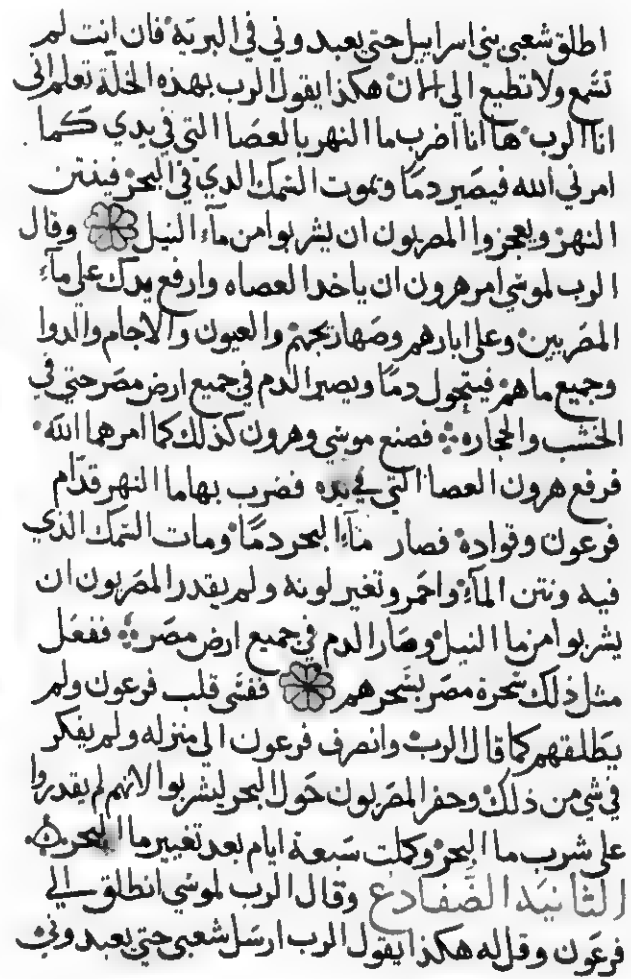 اطلق شعبي بني اسراييل حتي يعبدوني في البرية فان انت لم
تشمع ولا تطيع الي الان هكذا يقول الرب بهذه الخلة تعلم اني
انا الرب ها انا اضرب ما النهر بالعصا التي في يدي كما
امرني الله فيصير دمًا وتموت السمك الدي في البحر فينتن
النهر ويعجزوا المصريون ان يشربوا من مآء النيل وقال
الرب لموسي امر هرون ان ياخد العصاه وارفع يدك علي مآء
المصريين وعلي ابارهم وصهاريجهم والعيون والاجام والدوا
وجميع ماهم فيتحول دمًا ويصير الدم في جميع ارض مصر حتي في
الخشب والحجاره فصنع موسي وهرون كذلك كما امرهما الله
فرفع هرون العصا التي في يده فضرب بها ما النهر قدّام
فرعون وقواده فصار مآء البحر دمًا ومات السمك الذي
فيه ونتن المآء واحمر وتغير لونه ولم يقدر المصريون ان
يشربوا من ما النيل وصار الدم في جميع ارض مصر ففعل
مثل ذلك سحرة مصر بسحرهم فقسي قلب فرعون ولم
يطلقهم كما قال الرب وانصرف فرعون الي منزله ولم يفكر
في شي من ذلك وحفر المصريون حول البحر ليشربوا لانهم لم يقدروا
علي شرب ما البحر وكملت سبعة ايام بعد تغيير ما البحر
الثانية الضفادع وقال الرب لموسي انطلق الي
فرعون وقل له هكذا يقول الرب ارسل شعبي حتي يعبدوني